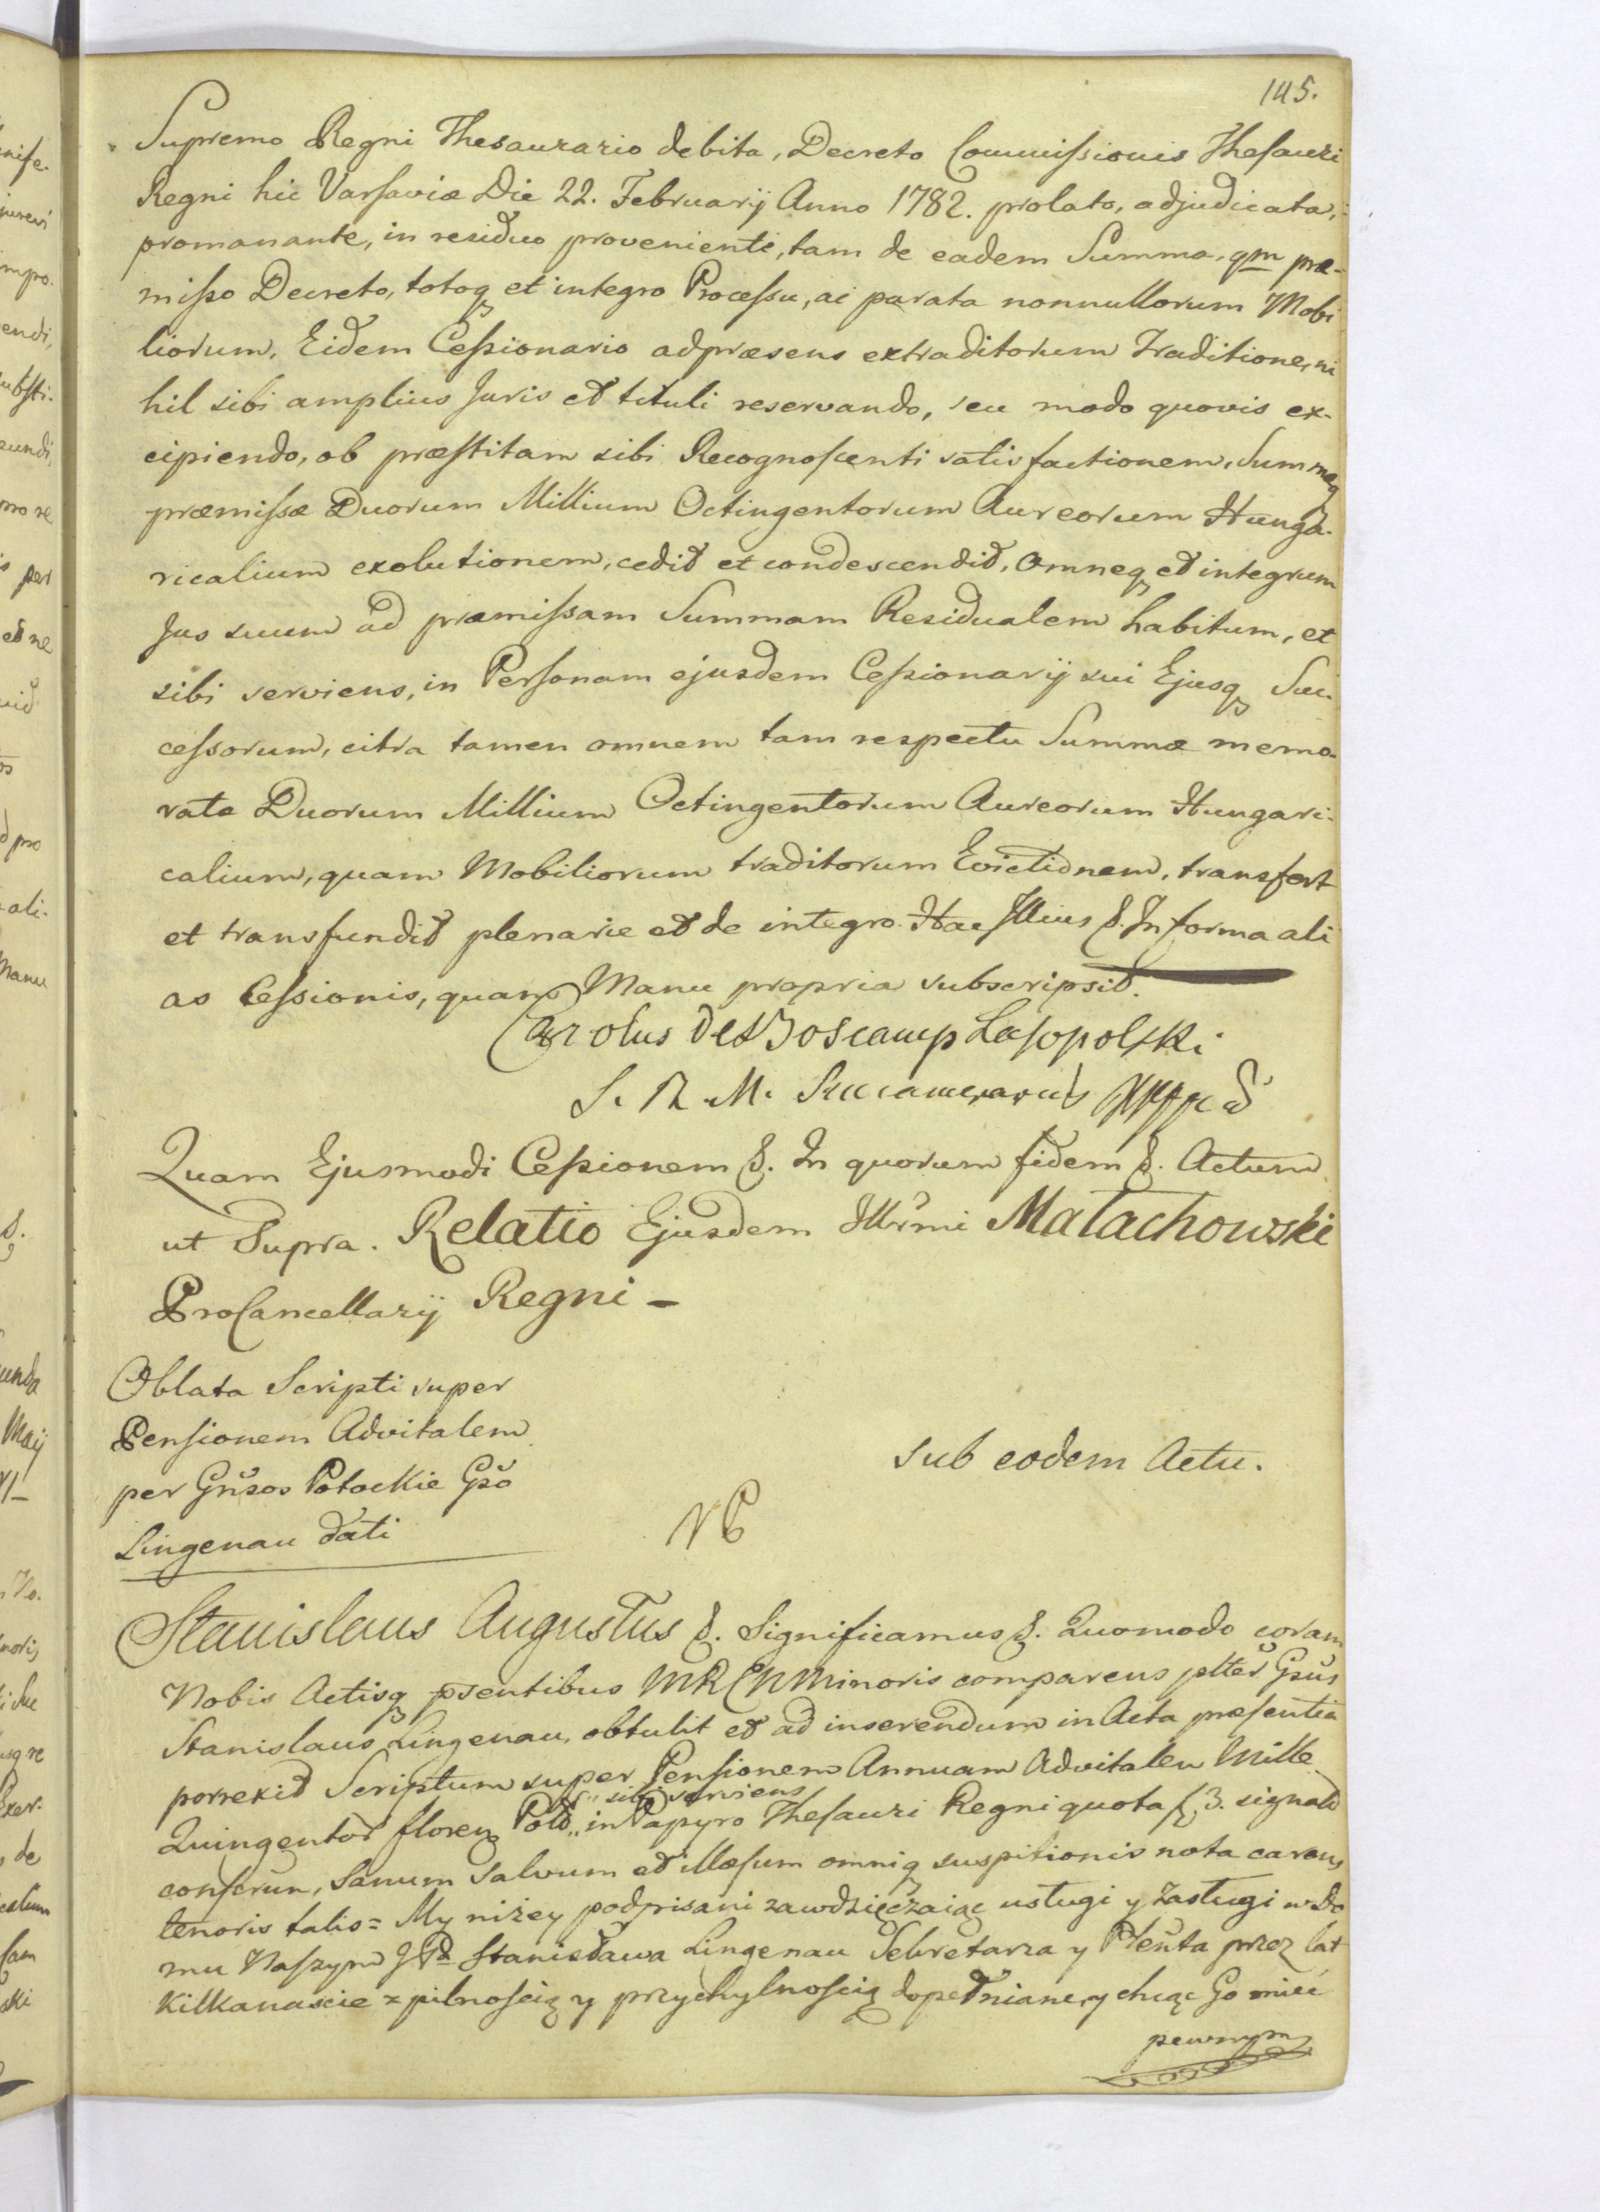 145.
Supremo Regni Thesaurario debita, Decreto Commissionis Thesauri
Regni hic Varsaviæ Die 22. Februarij Anno 1782. prolato, adjudicata,
promanante, in residuo provenienti, tam de eadem Summa, qm præ-
misso Decreto, totoq et integro Processu, ac parata nonnullorum Mobi
liorum, Eidem Cessionario adpræsens extraditorum Traditione, ni
hil sibi amplius Juris et tituli reservando, seu modo quovis ex-
cipiendo, ob præstitam sibi Recognoscenti satisfactionem, Summæq
præmissæ Duorum Millium Octingentorum Aureorum Hunga-
ricalium exolutionem, cedit et condescendit, Omneq et integrum
Jus suum ad præmissam Summam Residualem habitum, et
sibi serviens, in Personam ejusdem Cessionarij sui Ejusq Suc-
cessorum, citra tamen omnem tam respectu Summæ memo-
ratæ Duorum Millium Octingentorum Aureorum Hungari-
calium, quam Mobiliorum traditorum Evictionem, transfert
et transfundit plenarie et de integro. Hac Illius &. In forma ali
as Cessionis, quam Manu propria subscripsit.
Carolus de Boscamp Lasopolski
S. R. M. Succamerarius
Quam Ejusmodi Cessionem &. In quorum fidem &. Actum
ut Supra. Relatio Ejusdem Illrmi Małachowski
ProCancellarij Regni -
Oblata Scripti super
Pensionem Advitalem
per Gnsos Potockie Gso
Lingenau dati
sub eodem Actu.
Stanislaus Augustus &. Significamus &. Quomodo coram
Nobis Actisq psentibus MRCNMinoris comparens plter Gsus
Stanislaus Lingenau, obtulit et ad inserendum in Acta præsentia
porrexit Scriptum super Pensionem Annuam Advitalem Mille
sibi serviens
Quingentor floren Pold in Papyro Thesauri Regni quota f. 3. signato
conscrun, Sanum Salvum et illæsum omniq suspitionis nota carens
tenoris talis = My niżey podpisani zawdzięczaiąc usługi y zasługi w Do
mu Naszym JPa Stanisława Lingenau Sekretarza y Plenta przez lat
Kilkanaście z pilnością y przychylnością dopełniane, y chcąc Go mieć
pewnym